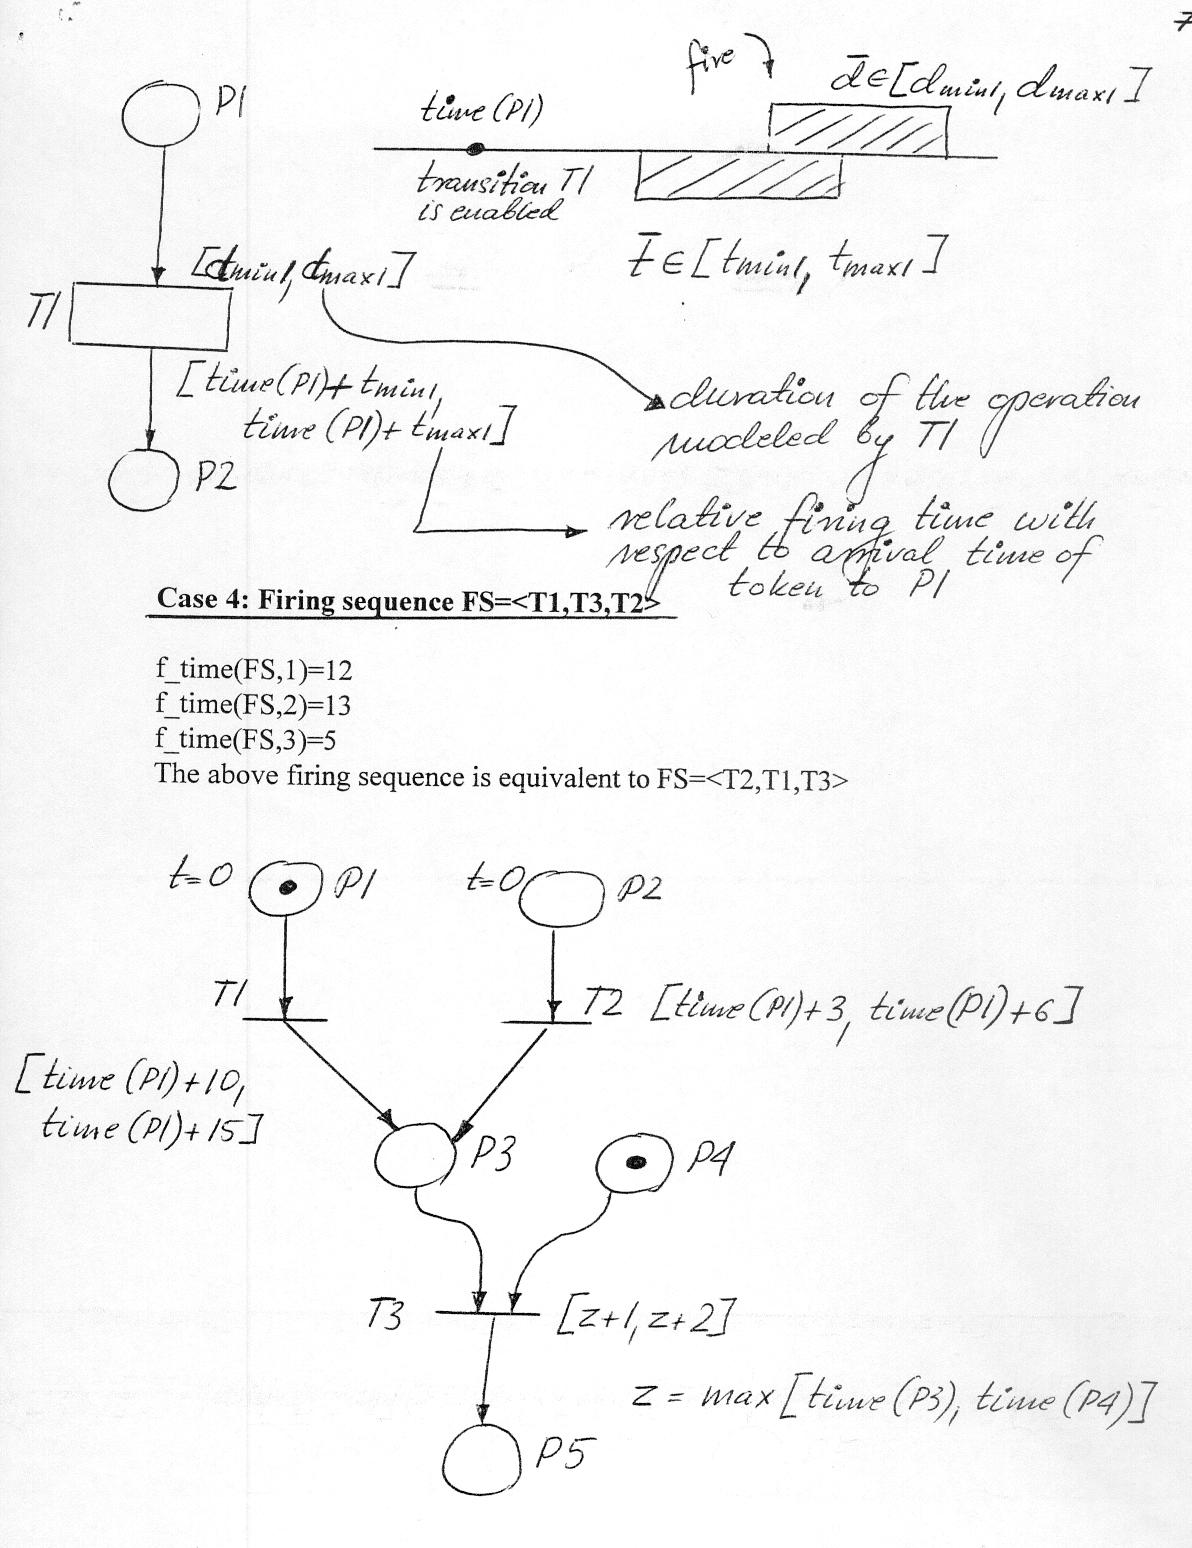 7
P1
fire
d̄∈[dmin1, dmax1]
time(P1)
transition T1
is enabled
t̄∈[tmin1, tmax1]
[dmin1, dmax1]
T1
[time(P1)+tmin1,
time(P1)+tmax1]
P2
duration of the operation
modeled by T1
relative firing time with
respect to arrival time of
token to P1
Case 4: Firing sequence FS=<T1,T3,T2>
f_time(FS,1)=12
f_time(FS,2)=13
f_time(FS,3)=5
The above firing sequence is equivalent to FS=<T2,T1,T3>
t=0 P1 t=0 P2
T1 T2 [time(P1)+3, time(P1)+6]
[time(P1)+10,
time(P1)+15]
P3 P4
T3 [z+1, z+2]
z = max[time(P3), time(P4)]
P5